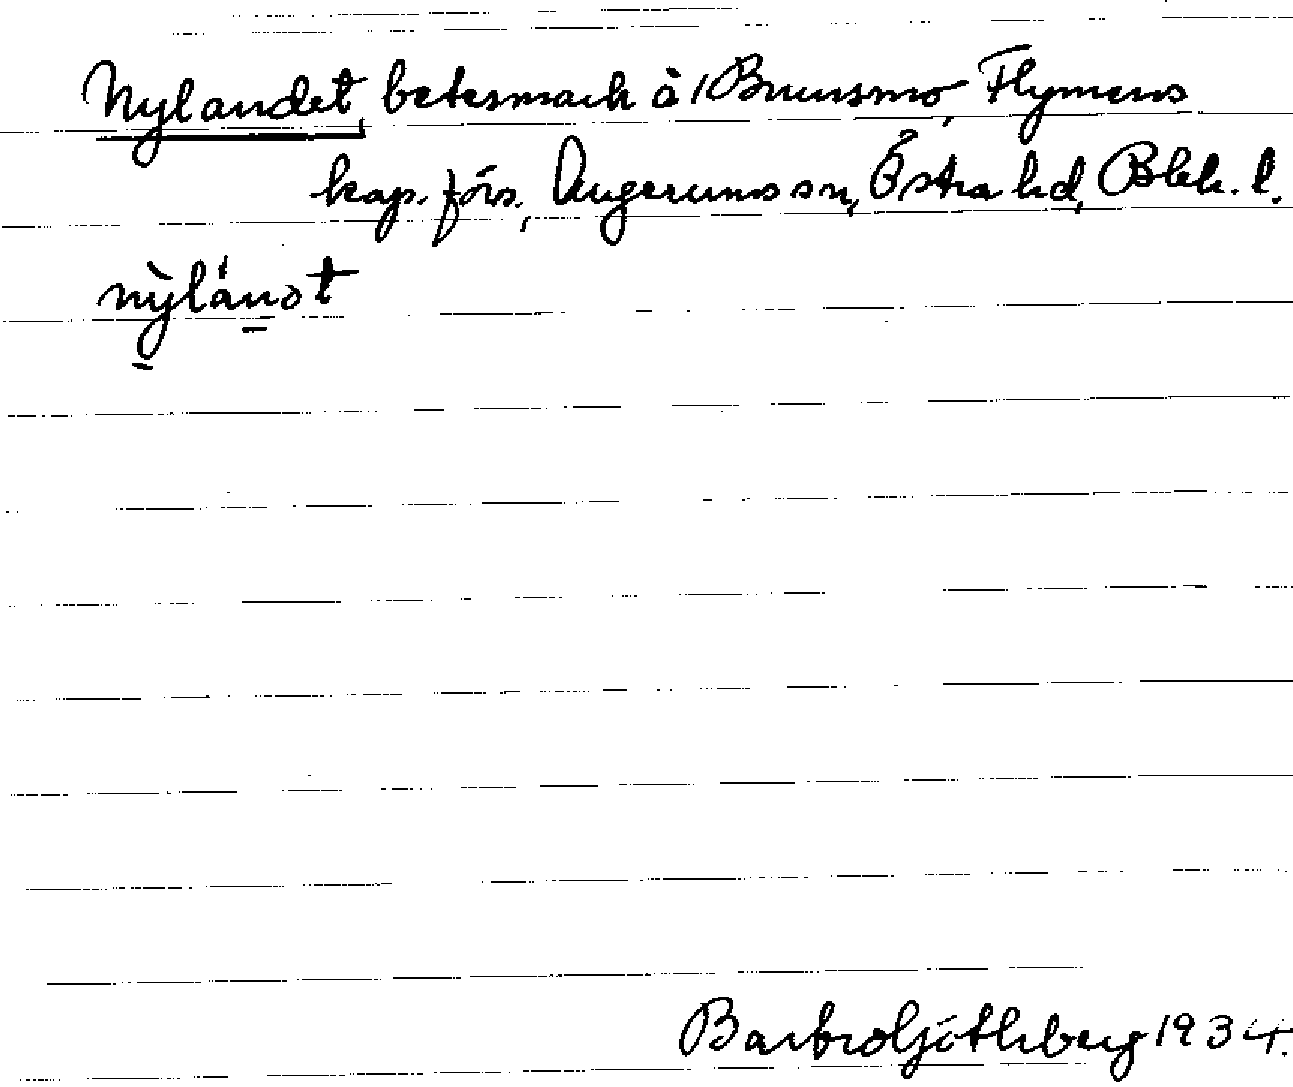 Nylandet, betesmark å 1 Brunsmo, Flymens
kap. förs., Augerums sn, Östra hd, Blek. l.
nỳlánət
Barbro Göthberg 1934.